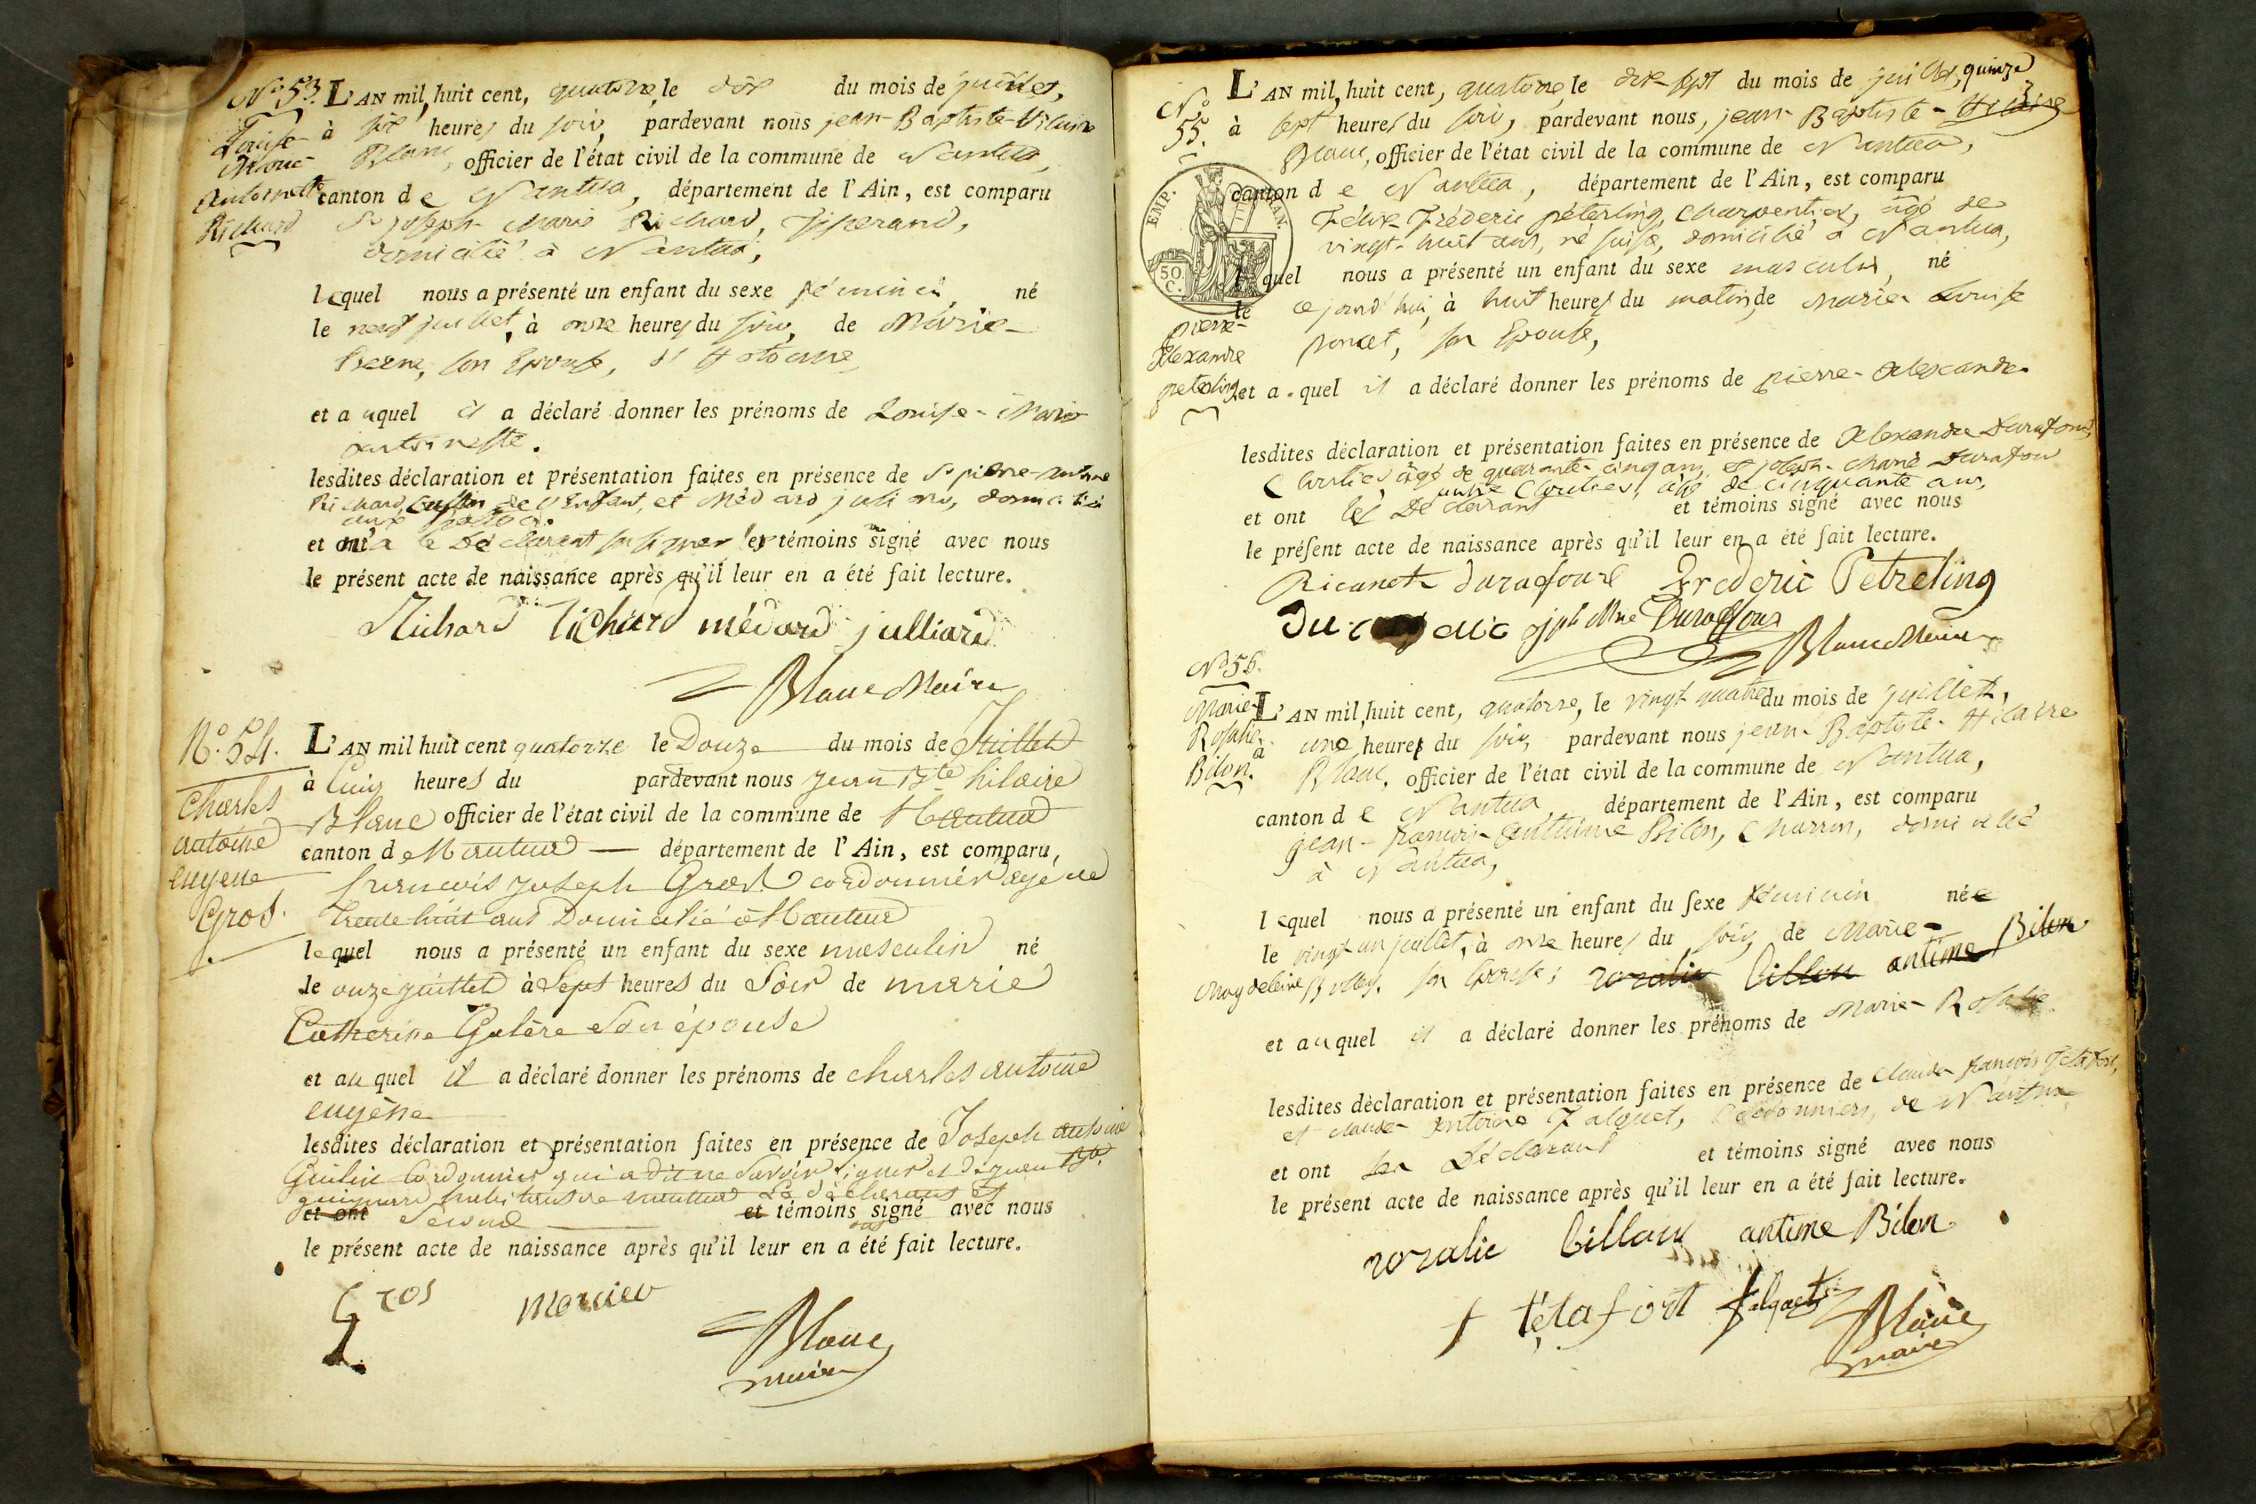 N.° 53.
Louise
Marie
Antoinette
Richard
L'AN mil huit cent, quatorze, le dix du mois de juillet,
à six heures du soir, pardevant nous jean-Baptiste-Hilaire
Blanc, officier de l'état civil de la commune de Nantua,
canton de Nantua, département de l'Ain, est comparu
Sr joseph Marie Richard, Tisserand,
domicilié à Nantua,
lequel nous a présenté un enfant du sexe féminin, né
le neuf juillet, à onze heures du soir, de Marie-
son Epouse,
et auquel il a déclaré donner les prénoms de Louise-Marie
antoinette.
lesdites déclaration et présentation faites en présence de Sr pierre-antoine
Richard, de l'Enfant, et Médard domicilié
et ont le Déclarant les témoins signé avec nous
le présent acte de naissance après qu'il leur en a été fait lecture.
Richard Richard médard julliard
Blanc Maire
N.° 54.
Charles
antoine
eugene
Gros.
L'AN mil huit cent quatorze le Douze du mois de Juillet
à Cinq heures du pardevant nous jean Bte hilaire
Blanc officier de l'état civil de la commune de Nantua
canton de Nantua département de l'Ain, est comparu,
francois joseph Gros cordonnier agé de
trente huit ans Domicilié à Nantua
lequel nous a présenté un enfant du sexe masculin né
le onze juillet à Sept heures du Soir de marie
Catherine Galère Son épouse
et au quel il a déclaré donner les prénoms de charles antoine
eugène
lesdites déclaration et présentation faites en présence de Joseph antoine
Cordonnier qui a dit ne Savoir Signer et
de nantua Le déclarant et
et ont Second et témoins signé avec nous
le présent acte de naissance après qu'il leur en a été fait lecture.
Gros mercier
Blanc
maire
N.° 55.
pierre-
Alexandre
peterling
EMP.
50
C.
L'AN mil huit cent, quatorze, le dix-sept du mois de juillet, quinze
à sept heures du soir, pardevant nous, jean-Baptiste-Hilaire
Blanc, officier de l'état civil de la commune de Nantua,
canton de Nantua, département de l'Ain, est comparu
Félix-Fréderic péterling, charpentier, âgé de
vingt-huit ans, né suisse, domicilié à Nantua,
lequel nous a présenté un enfant du sexe masculin, né
le ce jourd'hui, à huit heures du matin, de Marie Louise
poncet, son Epouse,
et a quel il a déclaré donner les prénoms de pierre-Alexandre
lesdites déclaration et présentation faites en présence de Alexandre Durafour,
âgé de quarante-cinq ans, et joseph-marie Durafour
autre âgé de cinquante ans,
et ont les Déclarant et témoins signé avec nous
le présent acte de naissance après qu'il leur en a été fait lecture.
durafour Frederic Petreling
jph Mrie Duraffour
Blanc Maire
N.° 56.
Marie-
Rosalie
Bilon.
L'AN mil huit cent, quatorze, le vingt quatre du mois de juillet,
à une heures du soir, pardevant nous jean-Baptiste-Hilaire
Blanc, officier de l'état civil de la commune de Nantua,
canton de Nantua département de l'Ain, est comparu
jean-francois-anthime Bilon, charron, domicilié
à Nantua,
lequel nous a présenté un enfant du sexe féminin née
le vingt un juillet, à onze heures du soir, de Marie-
Magdeleine son Epouse; rozalie billon antime Bilon
et auquel il a déclaré donner les prénoms de Marie-Rosalie.
lesdites déclaration et présentation faites en présence de Claude françois Tétafort,
et claude Antoine Falquet, cordonniers, de Nantua
et ont les Déclarant et témoins signé avec nous
le présent acte de naissance après qu'il leur en a été fait lecture.
rozalie billon antime Bilon
f tétafort falquet
Blanc
maire